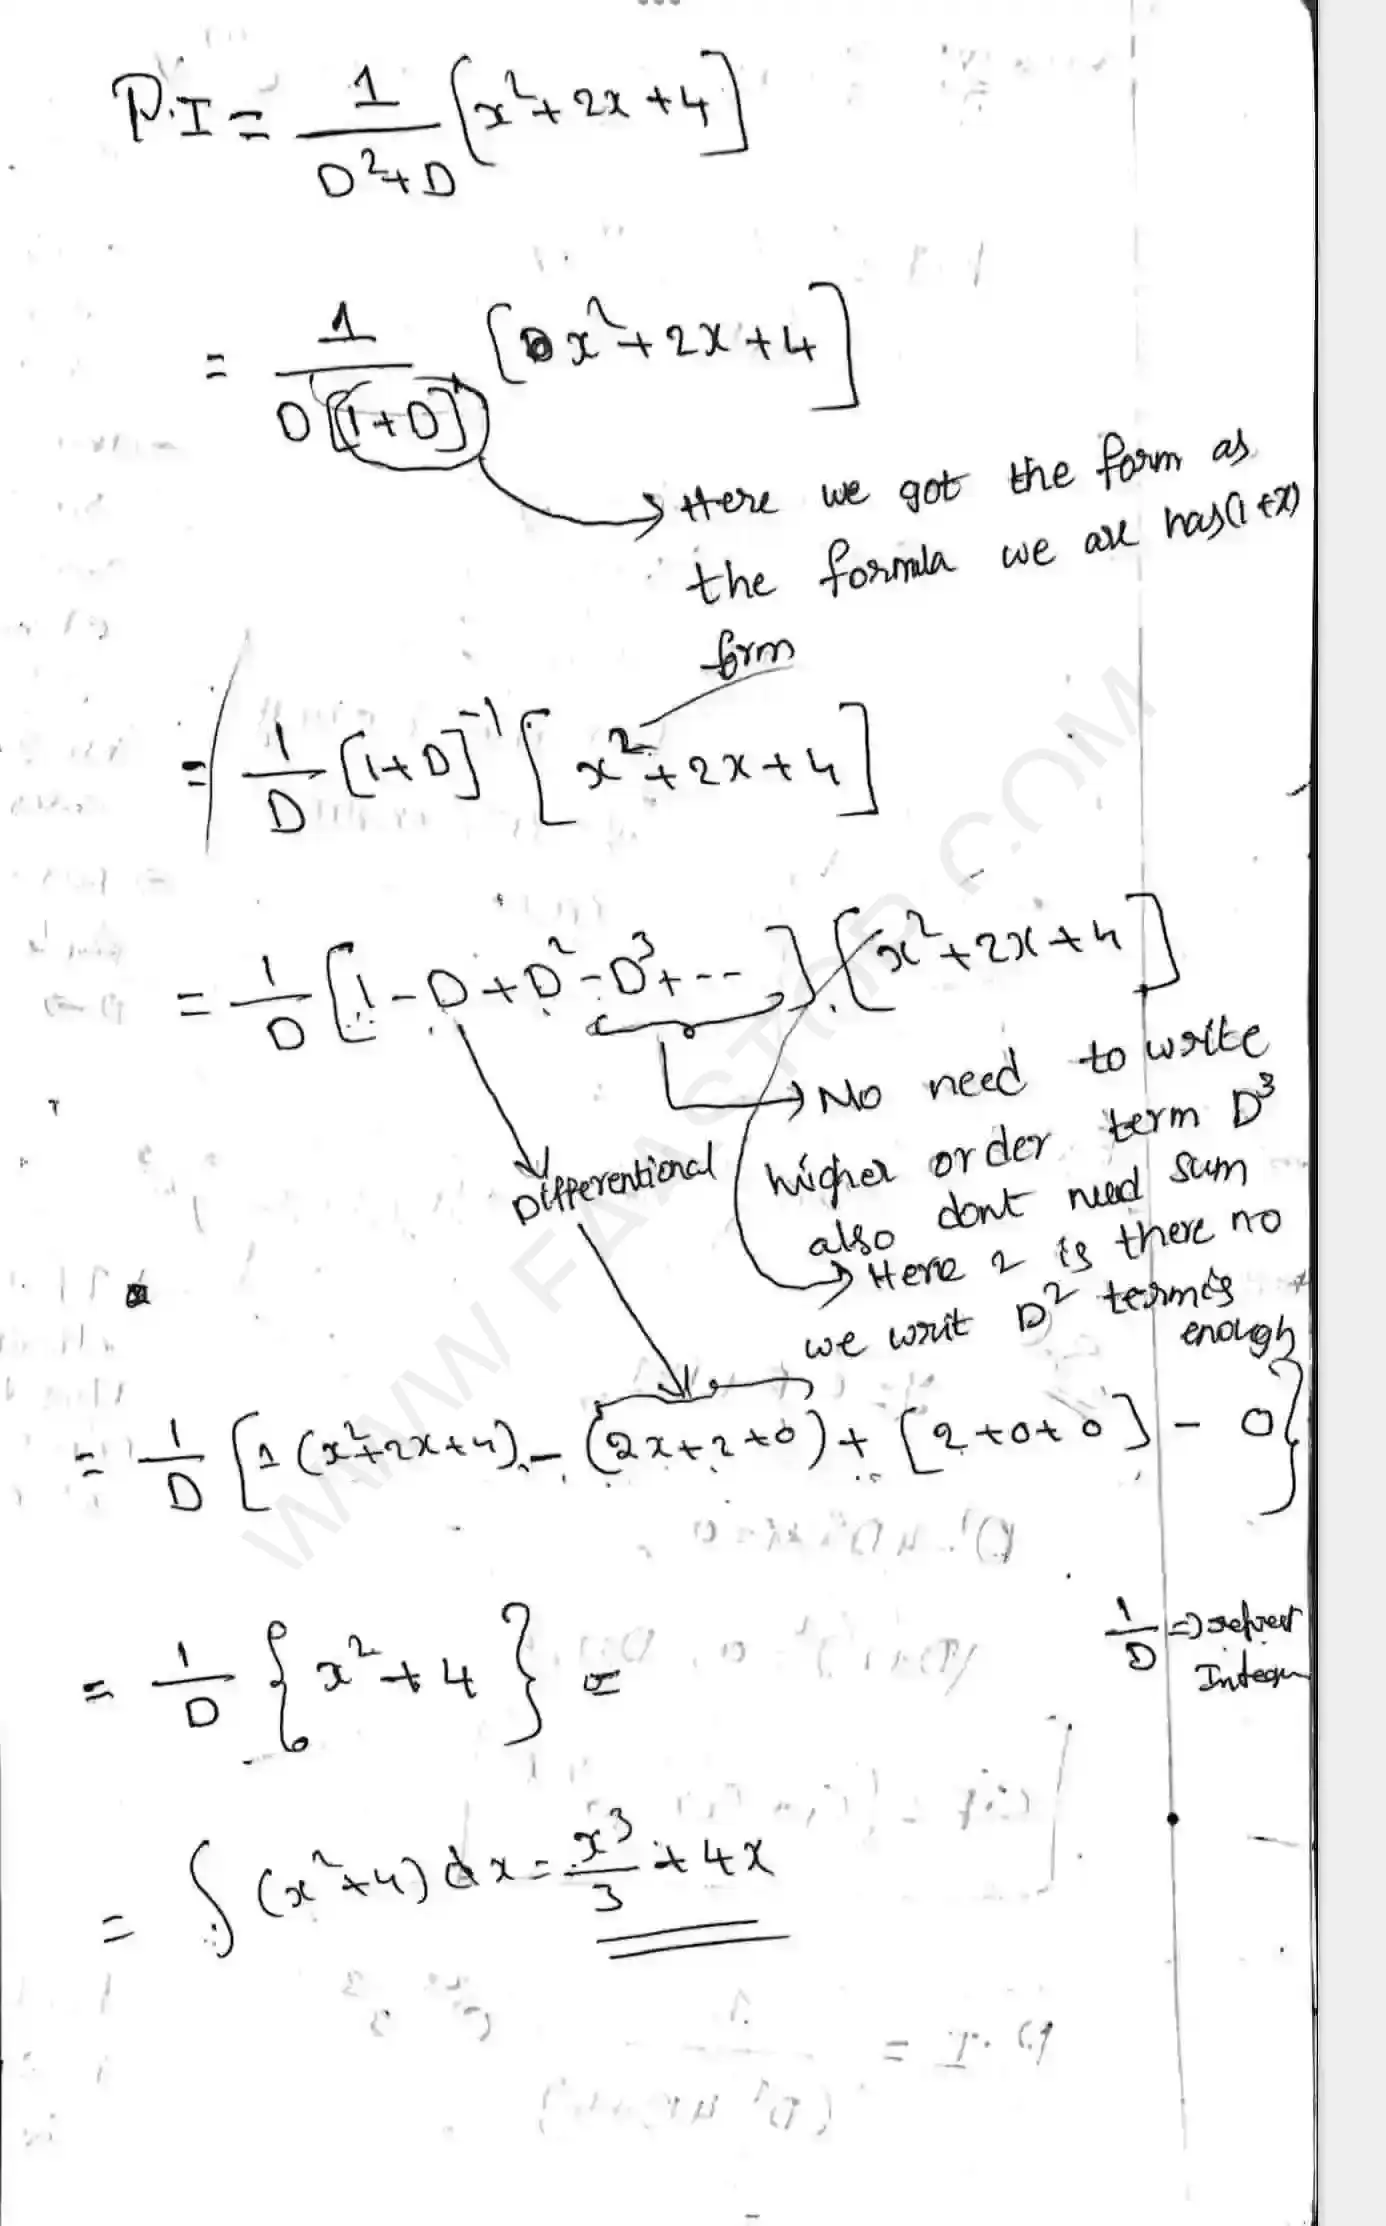 P.I = 1/(D²+D) [x²+2x+4]
= 1/(D[1+D]) [x²+2x+4]
Here we got the form as
the formula we are has(1+x)
form
= 1/D [1+D]⁻¹ [x²+2x+4]
= 1/D [1-D+D²-D³+--] [x²+2x+4]
No need to write
higher order term D³
also dont need sum
Differentional
Here 2 is there no
we writ D² terms is
enough
= 1/D [1(x²+2x+4) - (2x+2+0) + [2+0+0] - 0}
= 1/D {x²+4} =
1/D ⇒
= ∫(x²+4)dx = x³/3 + 4x
WWW.FAASTOP.COM